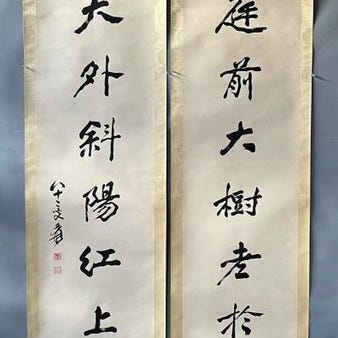 庭前大樹老於
天外斜陽紅上
八十二叟爰